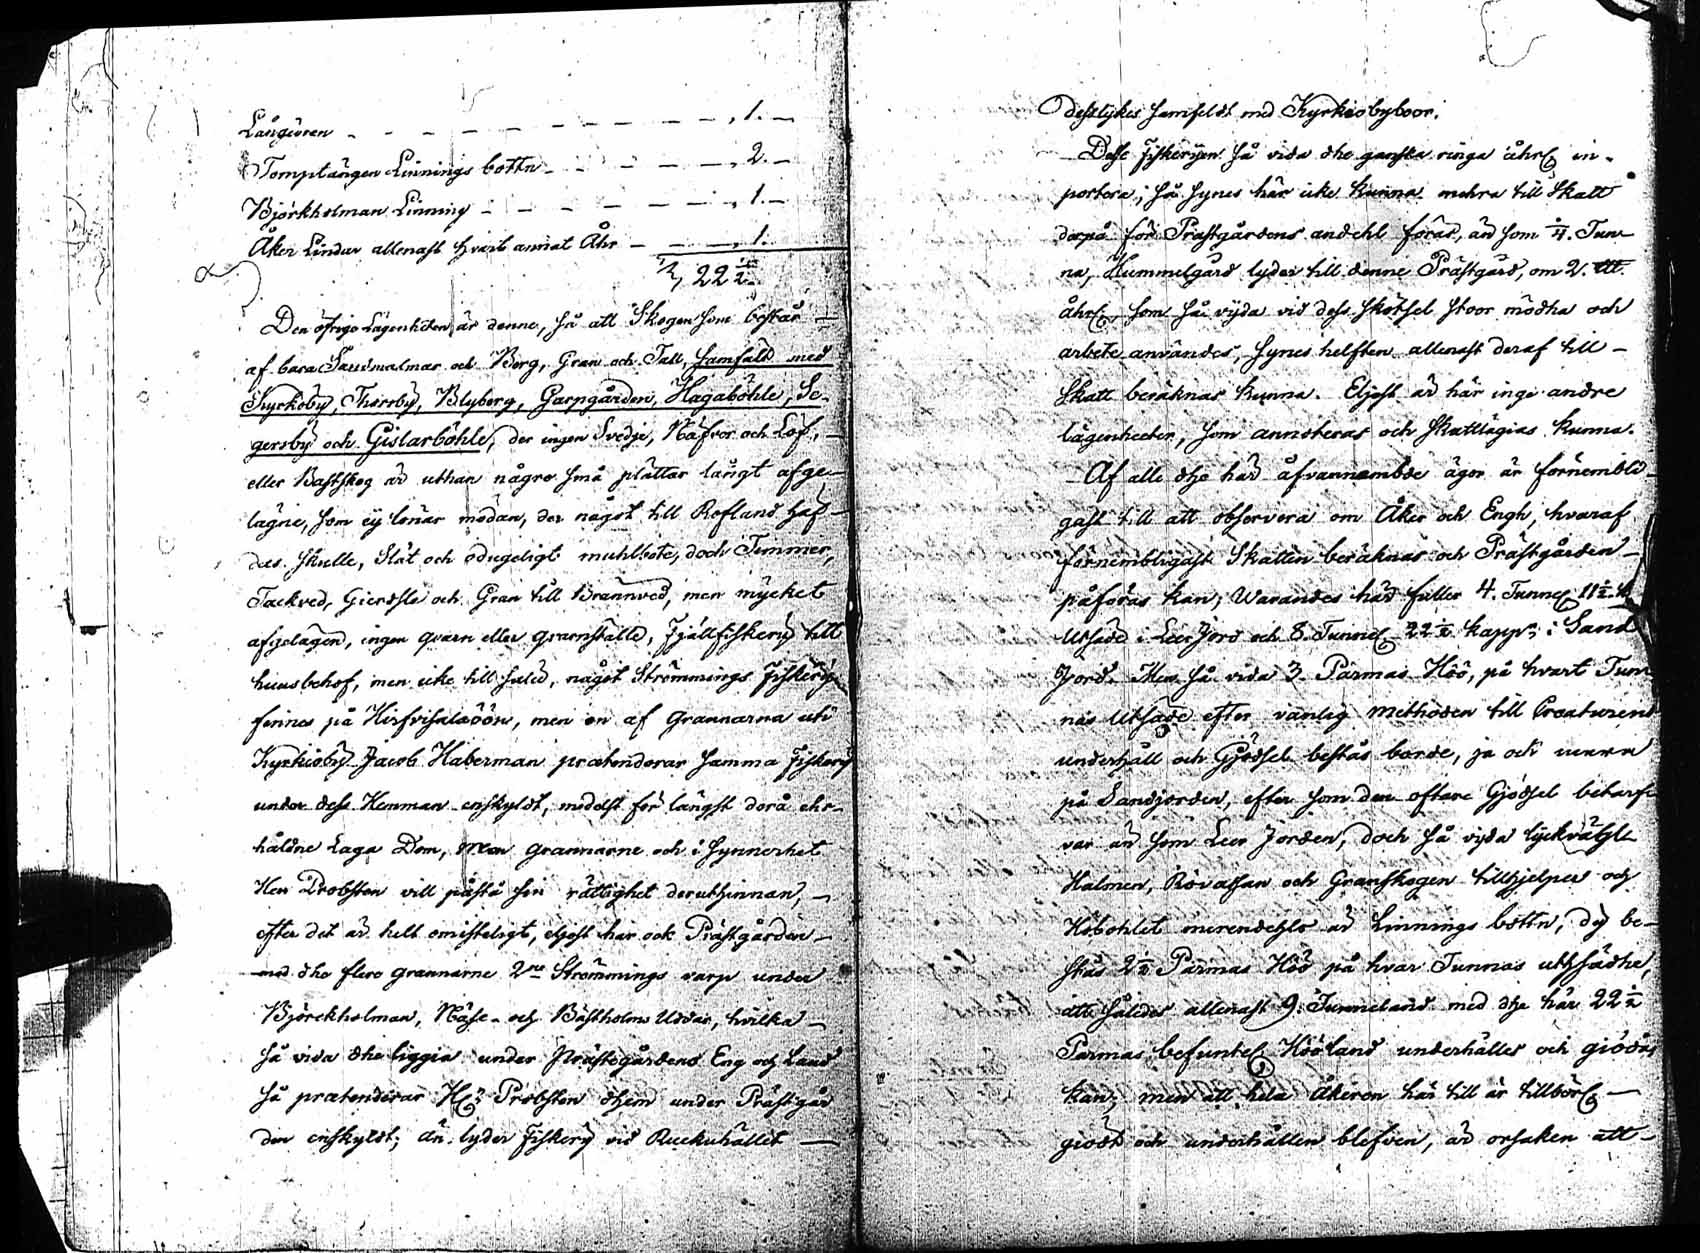 Långören - - - - - - - - - , 1. -
Tomptängen Linnings bottn - - - - - , 2. -
Björkholman Linning - - - - - - , 1. -
Åker Lindar allenast hvart annat Åhr - - - , 1.
22 ½.
Den öfrige Lägenheten är denne, så att Skogen som består -
af bara Sandmalmar och Berg, Gran och Tall, samfäld med
Kyrkoby, Thorsby, Blyberg, Garpgården, Hagaböhle, Se-
gersby och Gislarböhle, der ingen Svedje, Näfver och Löf, -
eller Bastskog är uthan några små plättar långt afge-
lägne, som ej lönar mödan, der något till Rofland häf-
das skulle, Slät och odugeligt muhlbete, doch Timmer,
Tackved, Gierdsle och Gran till Brännved, men mycket
afgelägen, ingen qvarn eller qvarnställe, Fjällfiskery till
huusbehof, men icke till salu, något Strömmings Fiskery
finnes på Hirfvisalöön, men en af Grannarna uti
Kyrkioby Jacob Haberman prætenderar samma Fiskery
under dess Hemman enskyldt, medelst för längst derå ehr-
håldne Laga Dom, men grannarne och i synnerhet
Herr Probsten vill påstå sin rättighet deruthinnan, -
efter det är helt omisteligt, eljest har ock Prästgården -
med dhe flere grannarne 2ne Strömmings varp under
Björckholman, Näse- och Bastholms Uddar, hvilka -
så vida dhe liggia under Prästegårdens Eng och Land
så prætenderar Hr Probsten dhem under Prästgår
den enskyldt; än lyder Fiskery vid Ruckuhället -
desslykes samfeldt med Kyrkiobyboer.
Desse Fiskerijen så vida dhe ganska ringa åhrl. in-
portera; så synes här icke kunna mehra till Skatt
derpå för Prästgårdens andehl föras, än som ¼. Tun-
na, Hummelgård lyder till denne Prästgård, om 2.
åhrl., som så vijda vid dess skötsel stoor mödha och
arbete användes, synes helften allenast deraf till -
Skatt beräknas kunna. Eljest är här inge andre
lägenheeter, som annoteras och skattlägias kunna.
- Af alle dhe här åfvannembde ägor är förnembli-
gast till att observera om Åker och Engh, hvaraf
förnembligast Skatten beräknas och Prästgården -
påföras kan; Warandes här fuller 4. Tunnel. 11 ½.
Utsäde i Leer Jord och 8. Tunnel. 22 ½ kapp. i Sand
Jord. Men så vida 3. Parmas Höö, på hvart Tun
nas Utsäde efter vanlig methoden till Creaturens
underhåll och Gjödsel bestås borde, ja och meera
på Sandjorden, efter som den oftare Gjödsel behöf-
var än som Leer Jorden, doch så vijda lijkväl
Halmen, Rörvassan och Granskogen tillhjelper och
Höbohlet merendehls är Linnings bottn, dy be-
stås 2 ½ Parmas Höö på hvar Tunnas uthsädhe,
att således allenast 9. Tunneland med dhe här 22 ½
Parmas befuntel. Hööland underhålles och giödas
kan; men att hela Åkeren här till är tillbörl. -
giödt och underhållen blefven, är orsaken att -